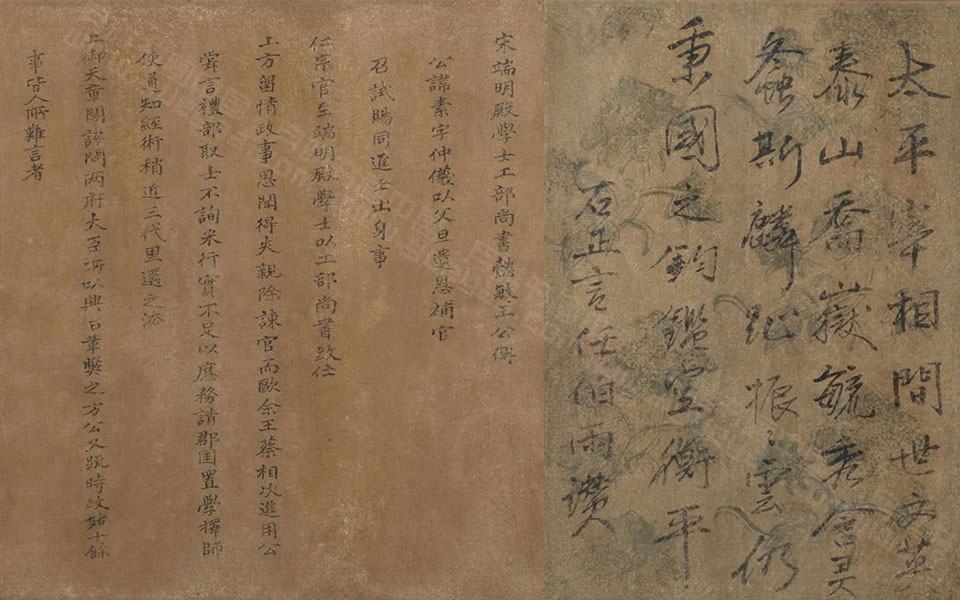 太平宰相間世文英
泰山喬嶽毓秀含灵
螽斯麟趾振〻雲仍
秉國之鈞鑑空衡平
右正言任伯雨讚
宋端明殿學士工部尚書懿敏王公傳
公諱素字仲儀以父旦遺恩補官
召試賜同進士出身事
仁宗官至端明殿學士以工部尚書致仕
上方留情政事思聞得失親除諫官而歐余王蔡相次進用公
嘗言禮部取士不詢采行實不足以應務請郡國置學擇師
使通知經術稍近三代里選之法
上御天章閣詔問兩府大臣所以興治革弊之方公又疏時政姑十餘
事皆人所難言者